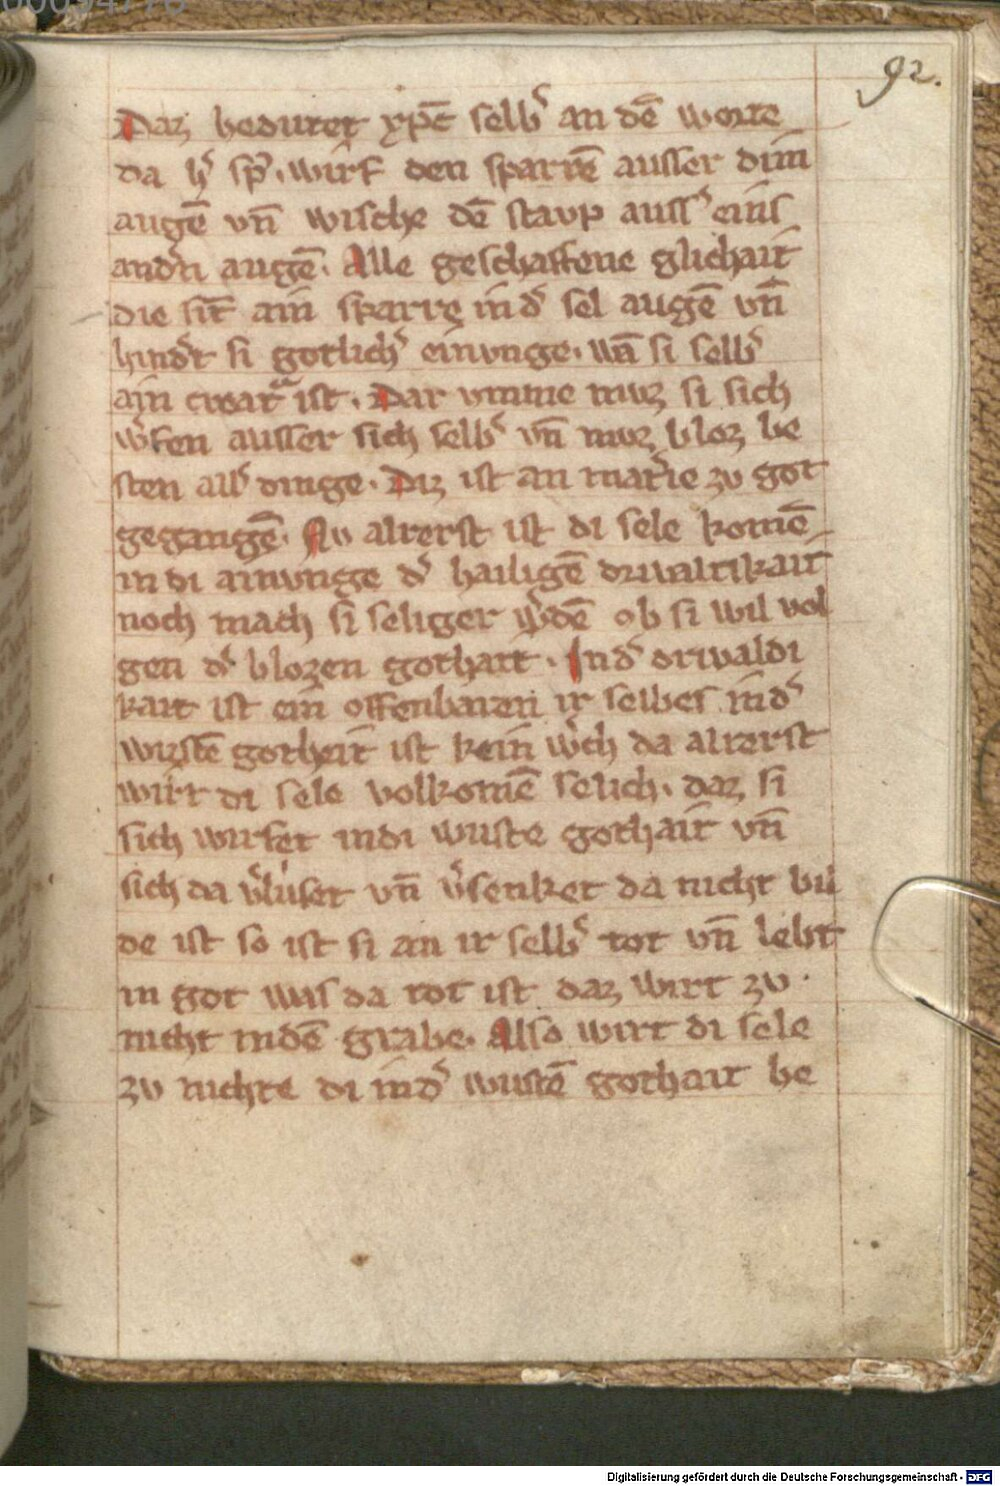 92.
Daz bedutet xpc̄ selb᷒ an dē worte
da h᷒ sp᷒. wirf den sparrē ausser dim
augē vn̄ wische dē staup auss᷒ eins
and᷒n augē. Alle geschaffene glichait
die sīt ain sparre in d᷒ sel augē vn̄
hind᷒t si gotlich᷒ einunge. wā si selb᷒
ain creat᷒ ist. Dar vmme muz si sich
w᷒fen ausser sich selb᷒ vn̄ muz bloz be
sten all᷒ dinge. Diz ist an mat᷒ie zu got
gegangē. Nu alrerst ist di sele komē
in di ainunge d᷒ hailigē driualtikait
noch mach si seliger w᷒dē ob si wil vol
gen d᷒ blozen gothait. In d᷒ driualdi
kait ist ein offenbaren ir selbes in d᷒
wustē gotheit ist kein w᷒ch da alrerst
wirt di sele volkomē selich. daz si
sich wirfet in di wuste gothait vn̄
sich da v᷒luset vn̄ v᷒senket da nicht bil
de ist so ist si an ir selb᷒ tot vn̄ lebt
in got was da tot ist daz wirt zu
nicht in dē grabe. Also wirt di sele
zu nichte di in d᷒ wustē gothait be
Digitalisierung gefördert durch die Deutsche Forschungsgemeinschaft - DFG